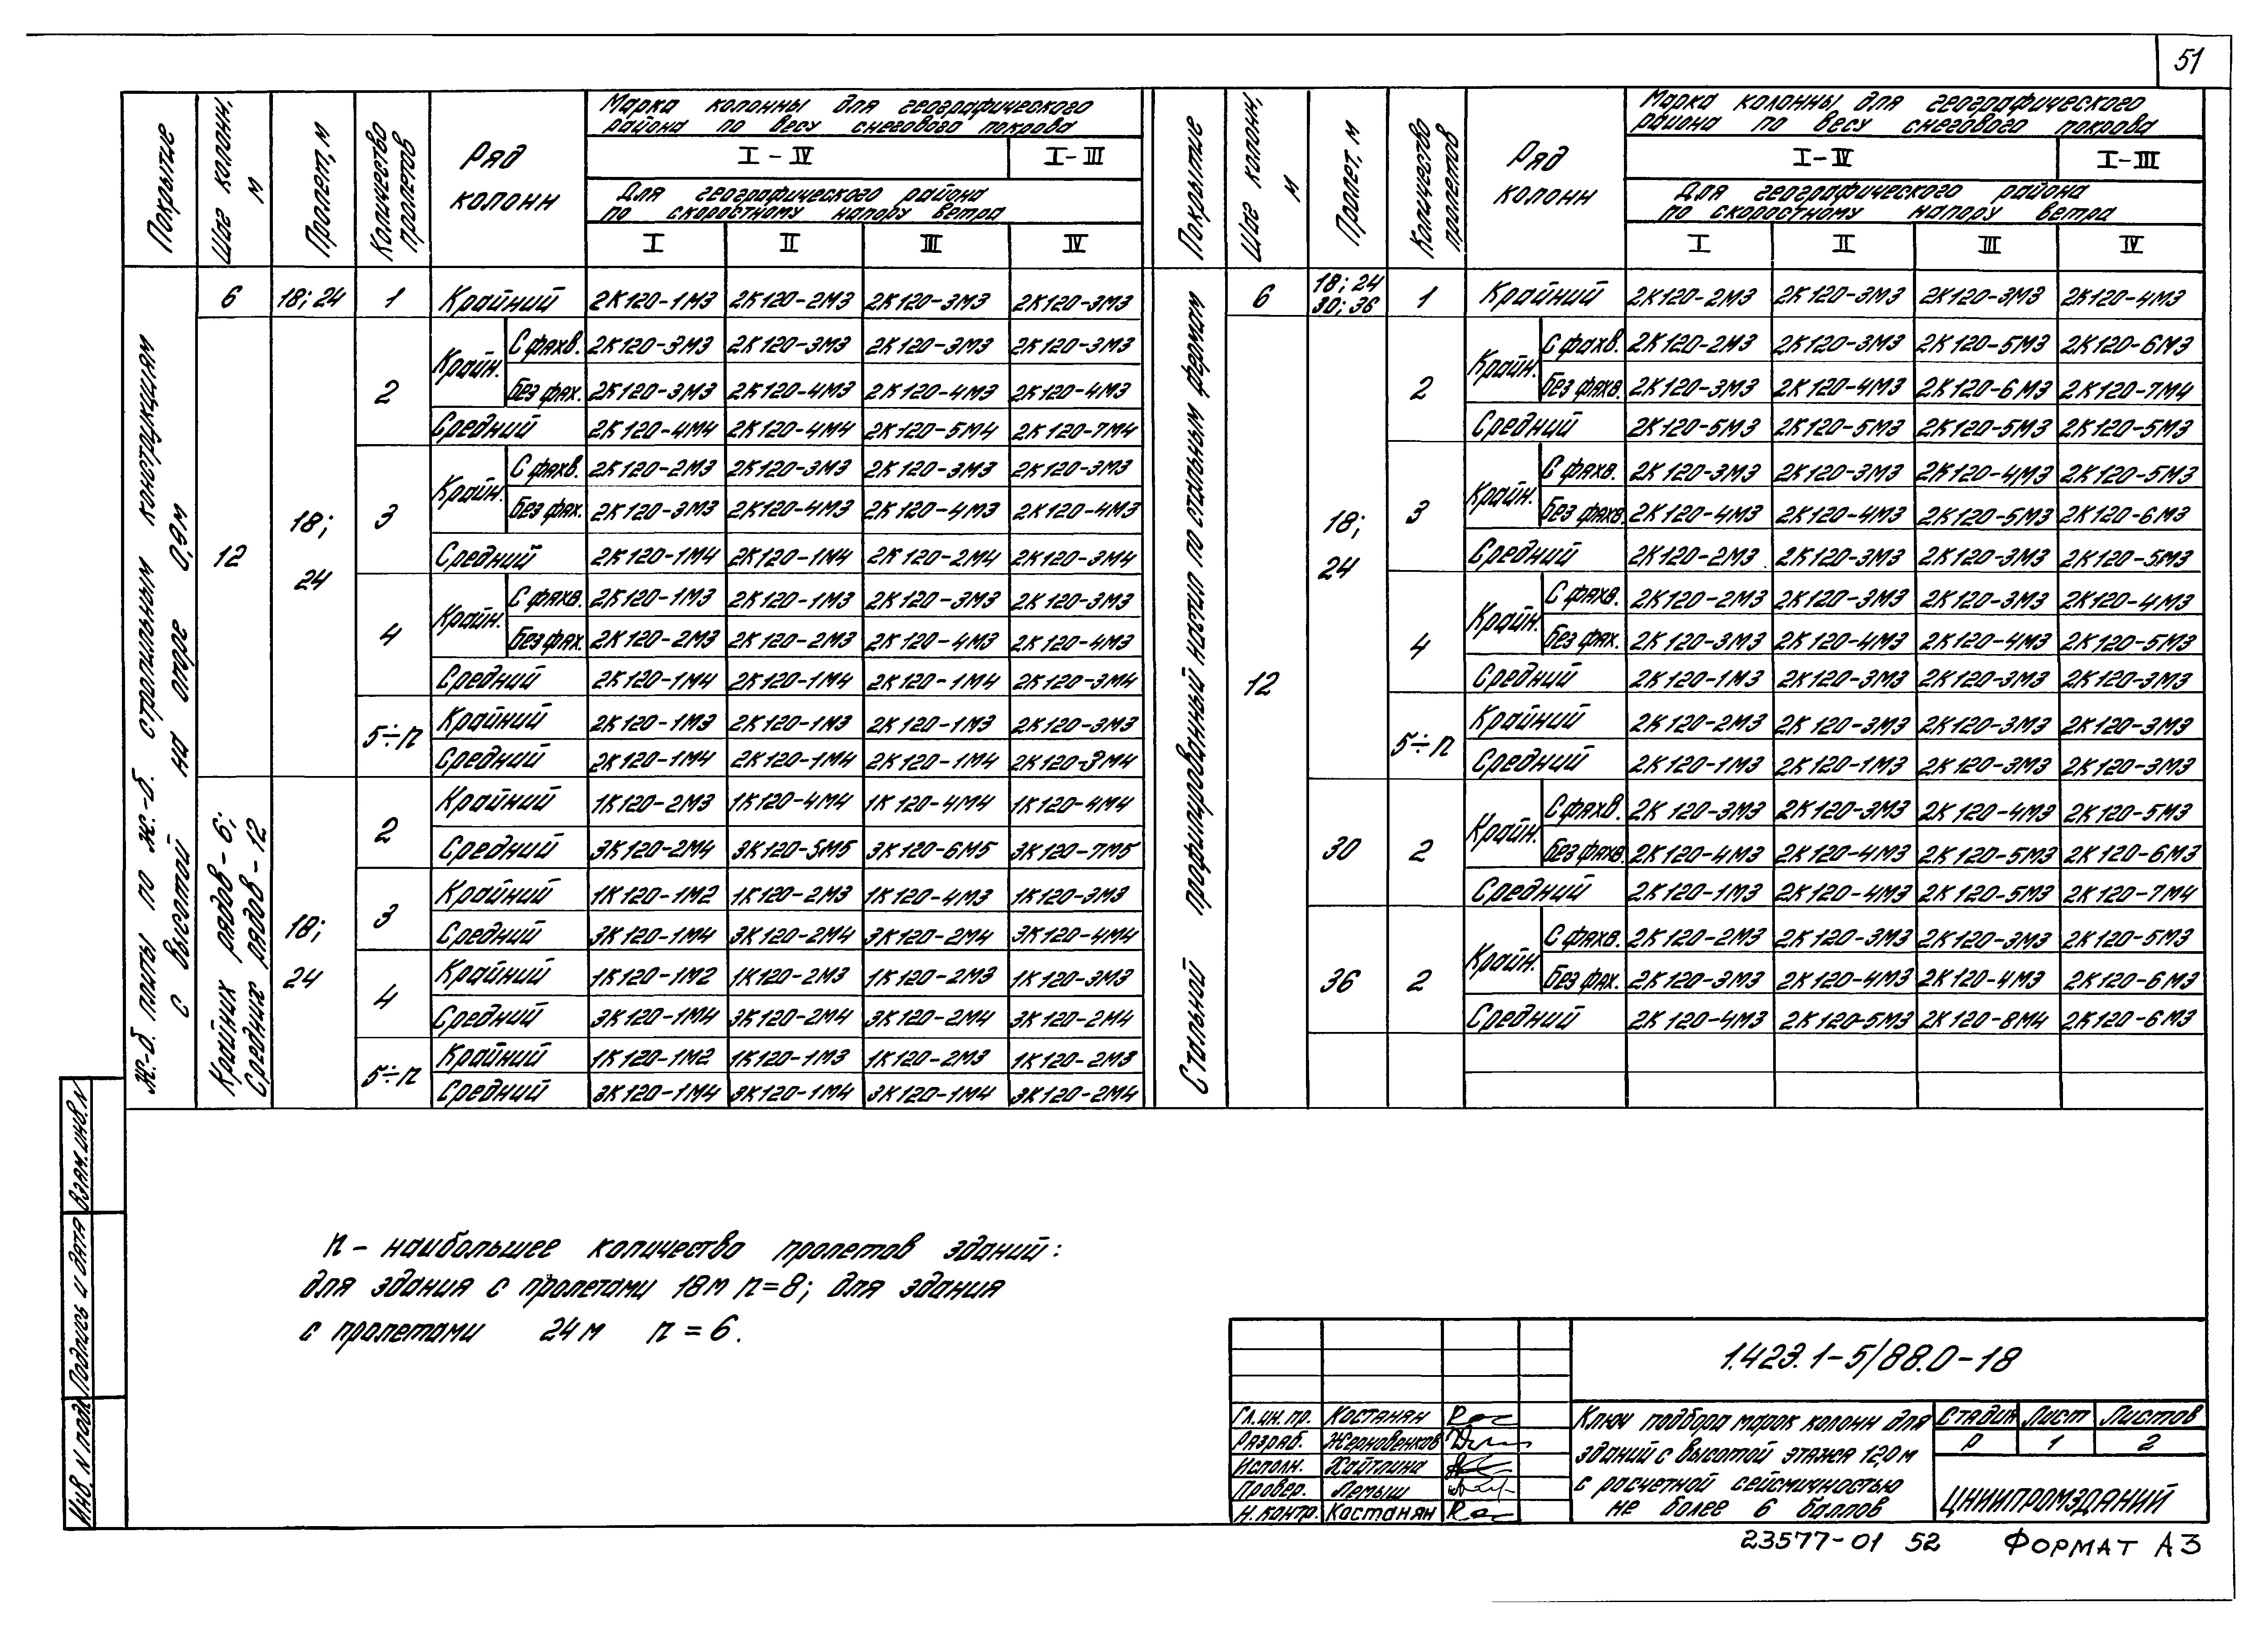 51
Покрытие
Шаг колонн, м
Пролет, м
Количество пролетов
Ряд колонн
Марка колонны для географического
района по весу снегового покрова
I - IV I - III
Для географического района
по скоростному напору ветра
I II III IV
Ж.-б. плиты по ж.-б. стропильным конструкциям
с высотой на опоре 0,9м
6 18; 24 1 Крайний 2К120-1М3 2К120-2М3 2К120-3М3 2К120-3М3
12 18; 24
2 Крайн. С фахв. 2К120-3М3 2К120-3М3 2К120-3М3 2К120-3М3
Без фах. 2К120-3М3 2К120-4М3 2К120-4М3 2К120-4М3
Средний 2К120-4М4 2К120-4М4 2К120-5М4 2К120-7М4
3 Крайн. С фахв. 2К120-2М3 2К120-3М3 2К120-3М3 2К120-3М3
Без фах. 2К120-3М3 2К120-4М3 2К120-4М3 2К120-4М3
Средний 2К120-1М4 2К120-1М4 2К120-2М4 2К120-3М4
4 Крайн. С фахв. 2К120-1М3 2К120-1М3 2К120-3М3 2К120-3М3
Без фах. 2К120-2М3 2К120-2М3 2К120-4М3 2К120-4М3
Средний 2К120-1М4 2К120-1М4 2К120-1М4 2К120-3М4
5÷n Крайний 2К120-1М3 2К120-1М3 2К120-1М3 2К120-3М3
Средний 2К120-1М4 2К120-1М4 2К120-1М4 2К120-3М4
Крайних рядов - 6;
Средних рядов - 12
18; 24
2 Крайний 1К120-2М3 1К120-4М4 1К120-4М4 1К120-4М4
Средний 3К120-2М4 3К120-5М5 3К120-6М5 3К120-7М5
3 Крайний 1К120-1М2 1К120-2М3 1К120-4М3 1К120-3М3
Средний 3К120-1М4 3К120-2М4 3К120-2М4 3К120-4М4
4 Крайний 1К120-1М2 1К120-2М3 1К120-2М3 1К120-3М3
Средний 3К120-1М4 3К120-2М4 3К120-2М4 3К120-2М4
5÷n Крайний 1К120-1М2 1К120-1М3 1К120-2М3 1К120-2М3
Средний 3К120-1М4 3К120-1М4 3К120-1М4 3К120-2М4
Покрытие
Шаг колонн, м
Пролет, м
Количество пролетов
Ряд колонн
Марка колонны для географического
района по весу снегового покрова
I - IV I - III
Для географического района
по скоростному напору ветра
I II III IV
Стальной профилированный настил по стальным фермам
6 18; 24 30; 36 1 Крайний 2К120-2М3 2К120-3М3 2К120-3М3 2К120-4М3
12 18; 24
2 Крайн. С фахв. 2К120-2М3 2К120-3М3 2К120-5М3 2К120-6М3
Без фахв. 2К120-3М3 2К120-4М3 2К120-6М3 2К120-7М4
Средний 2К120-5М3 2К120-5М3 2К120-5М3 2К120-5М3
3 Крайн. С фахв. 2К120-3М3 2К120-3М3 2К120-4М3 2К120-5М3
Без фахв. 2К120-4М3 2К120-4М3 2К120-5М3 2К120-6М3
Средний 2К120-2М3 2К120-3М3 2К120-3М3 2К120-5М3
4 Крайн. С фахв. 2К120-2М3 2К120-3М3 2К120-3М3 2К120-4М3
Без фах. 2К120-3М3 2К120-4М3 2К120-4М3 2К120-5М3
Средний 2К120-1М3 2К120-3М3 2К120-3М3 2К120-3М3
5÷n Крайний 2К120-2М3 2К120-3М3 2К120-3М3 2К120-3М3
Средний 2К120-1М3 2К120-1М3 2К120-3М3 2К120-3М3
30 2 Крайн. С фахв. 2К120-3М3 2К120-3М3 2К120-4М3 2К120-5М3
Без фахв. 2К120-4М3 2К120-4М3 2К120-5М3 2К120-6М3
Средний 2К120-1М3 2К120-4М3 2К120-5М3 2К120-7М4
36 2 Крайн. С фахв. 2К120-2М3 2К120-3М3 2К120-3М3 2К120-5М3
Без фах. 2К120-3М3 2К120-4М3 2К120-4М3 2К120-6М3
Средний 2К120-4М3 2К120-5М3 2К120-8М4 2К120-6М3
n - наибольшее количество пролетов зданий:
для здания с пролетами 18м n=8; для здания
с пролетами 24м n = 6.
Взам. инв. N
Подпись и дата
Инв. N подл.
1.423.1-5/88.0-18
Гл. ин. пр. Костанян
Разраб. Жерновенков
Исполн. Хайтлина
Провер. Лемыш
Н. контр. Костанян
Ключ подбора марок колонн для
зданий с высотой этажа 12,0м
с расчетной сейсмичностью
не более 6 баллов
Стадия Лист Листов
Р 1 2
ЦНИИПРОМЗДАНИЙ
23577-01 52 Формат А3